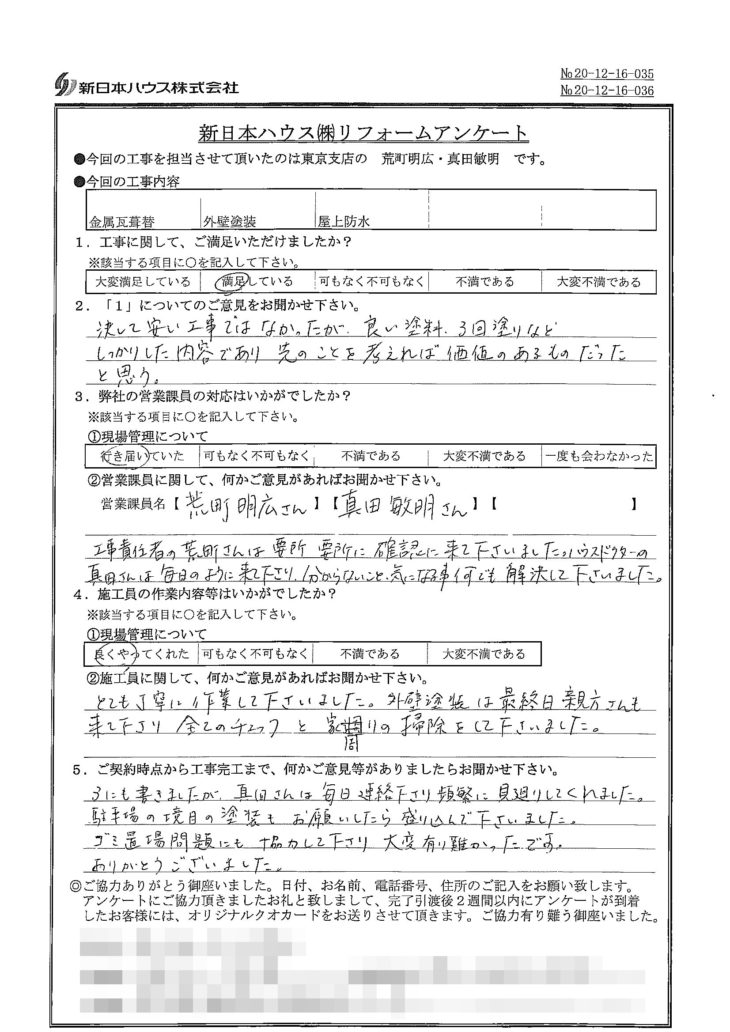 新日本ハウス株式会社
№20-12-16-035
№20-12-16-036
新日本ハウス㈱リフォームアンケート
●今回の工事を担当させて頂いたのは東京支店の 荒町明広・真田敏明 です。
●今回の工事内容
金属瓦葺替 外壁塗装 屋上防水
1．工事に関して、ご満足いただけましたか？
※該当する項目に〇を記入して下さい。
大変満足している 満足している 可もなく不可もなく 不満である 大変不満である
2．「1」についてのご意見をお聞かせ下さい。
決して安い工事ではなかったが、良い塗料、3回塗りなど
しっかりした内容であり 先のことを考えれば価値のあるものだった
と思う。
3．弊社の営業課員の対応はいかがでしたか？
※該当する項目に〇を記入して下さい。
①現場管理について
行き届いていた 可もなく不可もなく 不満である 大変不満である 一度も会わなかった
②営業課員に関して、何かご意見があればお聞かせ下さい。
営業課員名【荒町明広さん】【真田敏明さん】【 】
工事責任者の荒町さんは要所要所に確認に来て下さいました。ハウスドクターの
真田さんは毎日のように来て下さり、分からないこと、気になる事何でも解決して下さいました。
4．施工員の作業内容等はいかがでしたか？
※該当する項目に〇を記入して下さい。
①現場管理について
良くやってくれた 可もなく不可もなく 不満である 大変不満である
②施工員に関して、何かご意見があればお聞かせ下さい。
とても丁寧に作業して下さいました。外壁塗装は最終日親方さんも
来て下さり 全てのチェックと家周りの掃除をして下さいました。
5．ご契約時点から工事完工まで、何かご意見等がありましたらお聞かせ下さい。
3にも書きましたが、真田さんは毎日連絡下さり頻繁に見廻りしてくれました。
駐車場の境目の塗装もお願いしたら盛り込んで下さいました。
ゴミ置場問題にも協力して下さり大変有り難かったです。
ありがとうございました。
◎ご協力ありがとう御座いました。日付、お名前、電話番号、住所のご記入をお願い致します。
アンケートにご協力頂きましたお礼と致しまして、完了引渡後2週間以内にアンケートが到着
したお客様には、オリジナルクオカードをお送りさせて頂きます。ご協力有り難う御座いました。